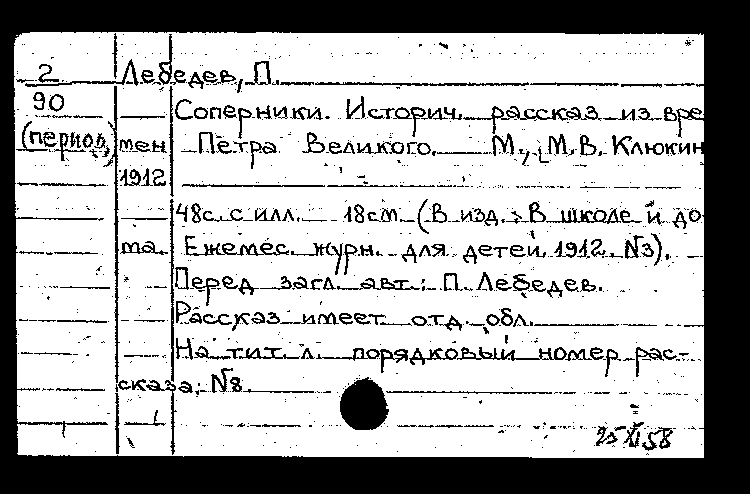 2 Лебедев, П.
90 Соперники. Историч. рассказ из вре
(период.) мен Петра Великого. М., М.В. Клюкин
1912
48с. с илл. 18см. (В изд.: В школе и до
ма. Ежемес. журн. для детей. 1912. №3).
Перед загл. авт.: П. Лебедев.
Рассказ имеет отд. обл.
На тит. л. порядковый номер рас-
сказа: №8.
25 XI 58